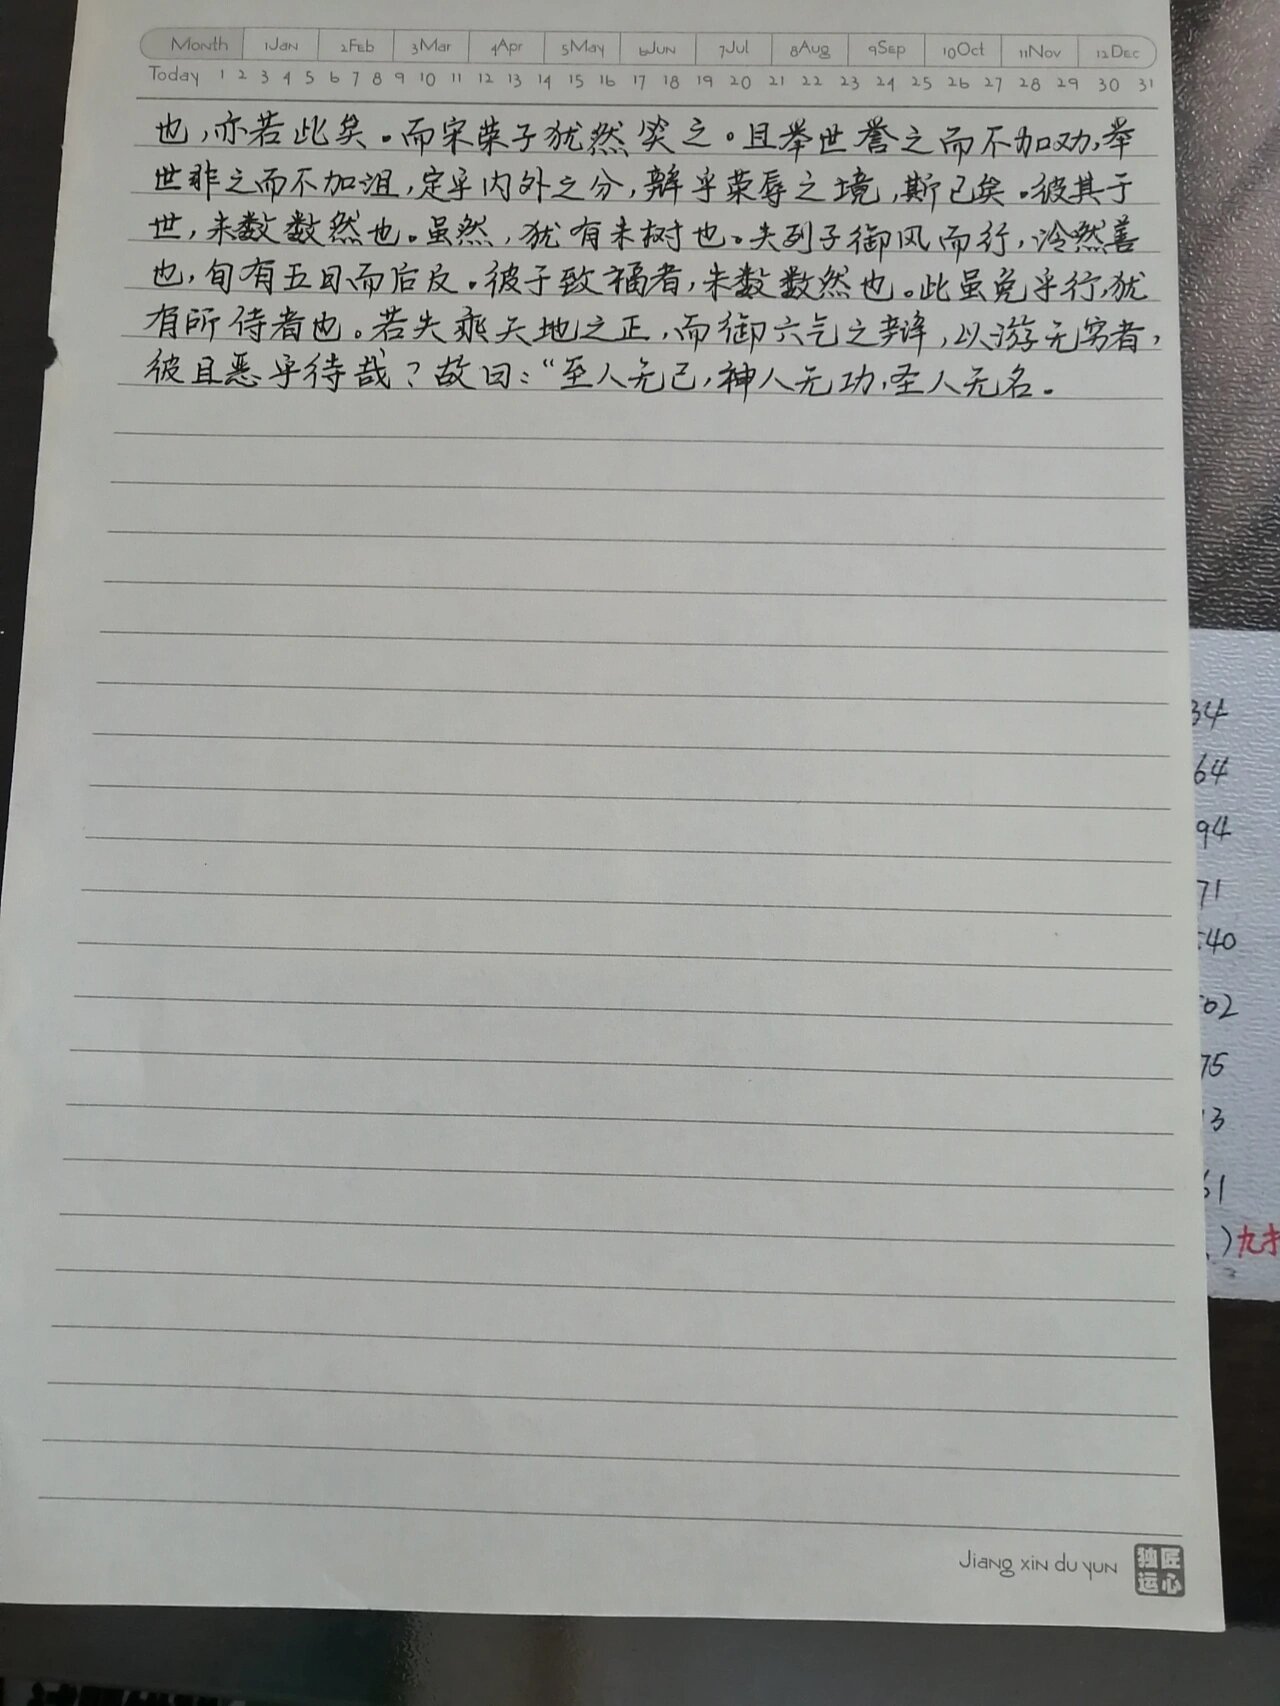 Month 1Jan 2Feb 3Mar 4Apr 5May 6Jun 7Jul 8Aug 9Sep 10Oct 11Nov 12Dec
Today 1 2 3 4 5 6 7 8 9 10 11 12 13 14 15 16 17 18 19 20 21 22 23 24 25 26 27 28 29 30 31
也,亦若此矣。而宋荣子犹然笑之。且举世誉之而不加劝,举
世非之而不加沮,定乎内外之分,辩乎荣辱之境,斯已矣。彼其于
世,未数数然也。虽然,犹有未树也。夫列子御风而行,泠然善
也,旬有五日而后反。彼于致福者,未数数然也。此虽免乎行,犹
有所待者也。若夫乘天地之正,而御六气之辩,以游无穷者,
彼且恶乎待哉?故曰:“至人无己,神人无功,圣人无名。
34
64
94
71
40
02
75
13
61
)九
Jiang xin du yun
独匠
运心